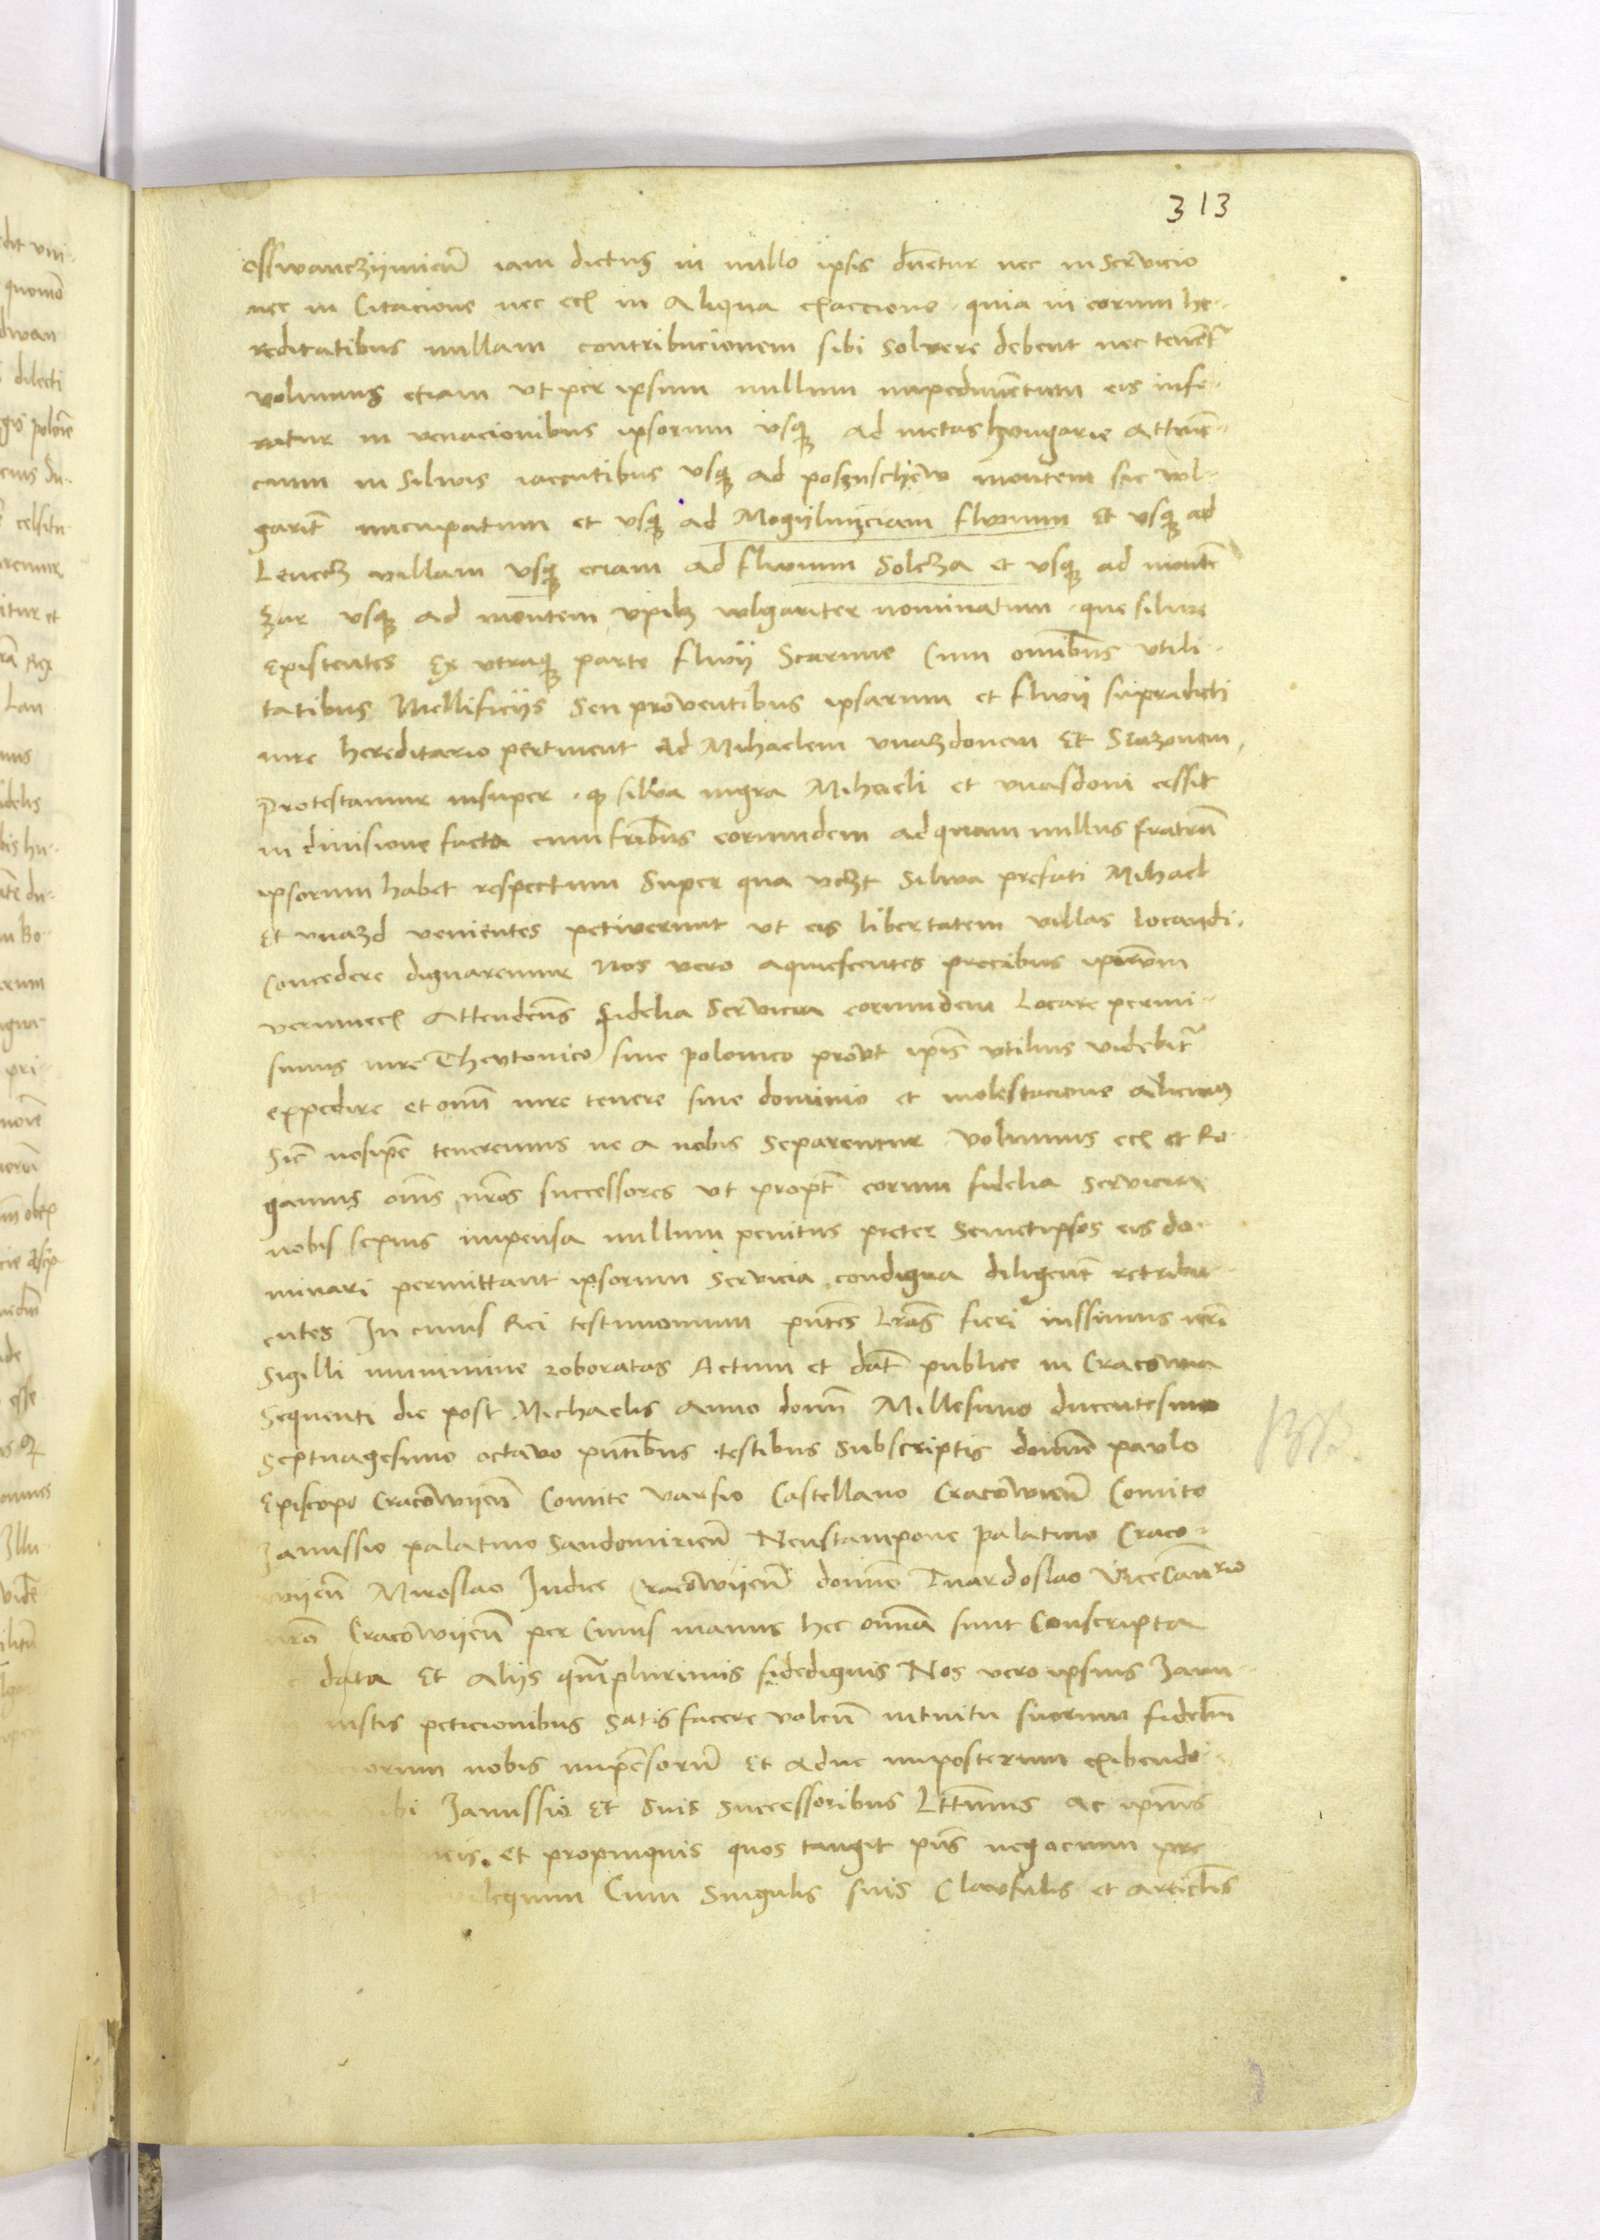 313
osswanczijmien iam dictus in nullo ipsis dnetur nec in servicio
nec in Citacione nec ecī in Aliqua exaccione quia in eorum he-
reditatibus nullam contribucionem sibi solvere debent nec tenēt
volumus etiam vt per ipsum nullum impedimētum eis infe-
ratur in venacionibus ipsorum vsq̨ ad metas hungarie
eciam in Silvis iacentibus vsq̨ ad posznschew montem sic wl-
garit̄ nuncupatum et vsq̨ ad Mogijlnijciam fluvium et vsq̨ ad
Lencz villam vsq̨ eciam ad fluvium Solcza et vsq̨ ad montē
Zar vsq̨ ad montem vpilz wlgariter nominatum que silve
existentes ex vtraq̨ parte fluvij Scarnne Cum omībus vtili-
tatibus Mellificijs Seu proventibus ipsarum et fluvij supradicti
iure hereditario pertinent ad Mihaelem vnazdonem Et Stazonem
Protestamur insuper q̨ silva nigra Mihaeli et vnasdoni cessit
in divisione facta cum frībus eorumdem ad quam nullus fratrū
ipsorum habet respectum Super qua Silva prefati Mihael
Et vnazd venientes petiverunt vt eis libertatem villas locandi
Concedere dignaremur Nos vero aquiescentes precibus ipsorum
verumecī Attendentes fidelia Servicia eorumdem Locare permi-
simus iure Theutonico sive polonico provt ipīs vtilius videbit̄
expedire et omī iure tenere sine dominio et molestacione alicuius
Sic teneremus ne a nobis separentur volumus ecī et Ro-
gamus omīs nr̄os successores vt propt̄ eorum fidelia servicia
nobis sepius impensa nullum penitus preter semetipsos eis do-
minari permittant ipsorum servicia condigna diligent̄ retribu-
entes In cuius Rei testimonium pn̄tes Lrās fieri iussimus nrī
Sigilli munimine roboratas Actum et dat̄ publice in Cracowia
Sequenti die post Michaelis anno domī Millesimo ducentesimo
Septuagesimo octavo pn̄tibus testibus subscriptis domino paulo
Episcopo Cracowijen̄ Comite varsio Castellano Cracowien̄ Comite
Janussio palatino Sandomirien̄ Neustampone palatino Craco-
wijen̄ Miroslao Iudice Cracowijen̄ domino Tuardoslao ViceCan̄rio
nr̄o Cracowijen̄ per Cuius manus hec omīa sunt Conscripta
data Et Alijs qm̄plurimis fidedignis Nos vero ipsius Janu-
iustis peticionibus satisfacere volen̄ intuitu suorum fideliū
nobis impēsorū Et aduc imposterum exibendo-
Janussio Et suis successoribus Lttimis ac
et propinquis quos tangit pn̄s negocium pre-
Cum singulis suis Clausulis et articlīs